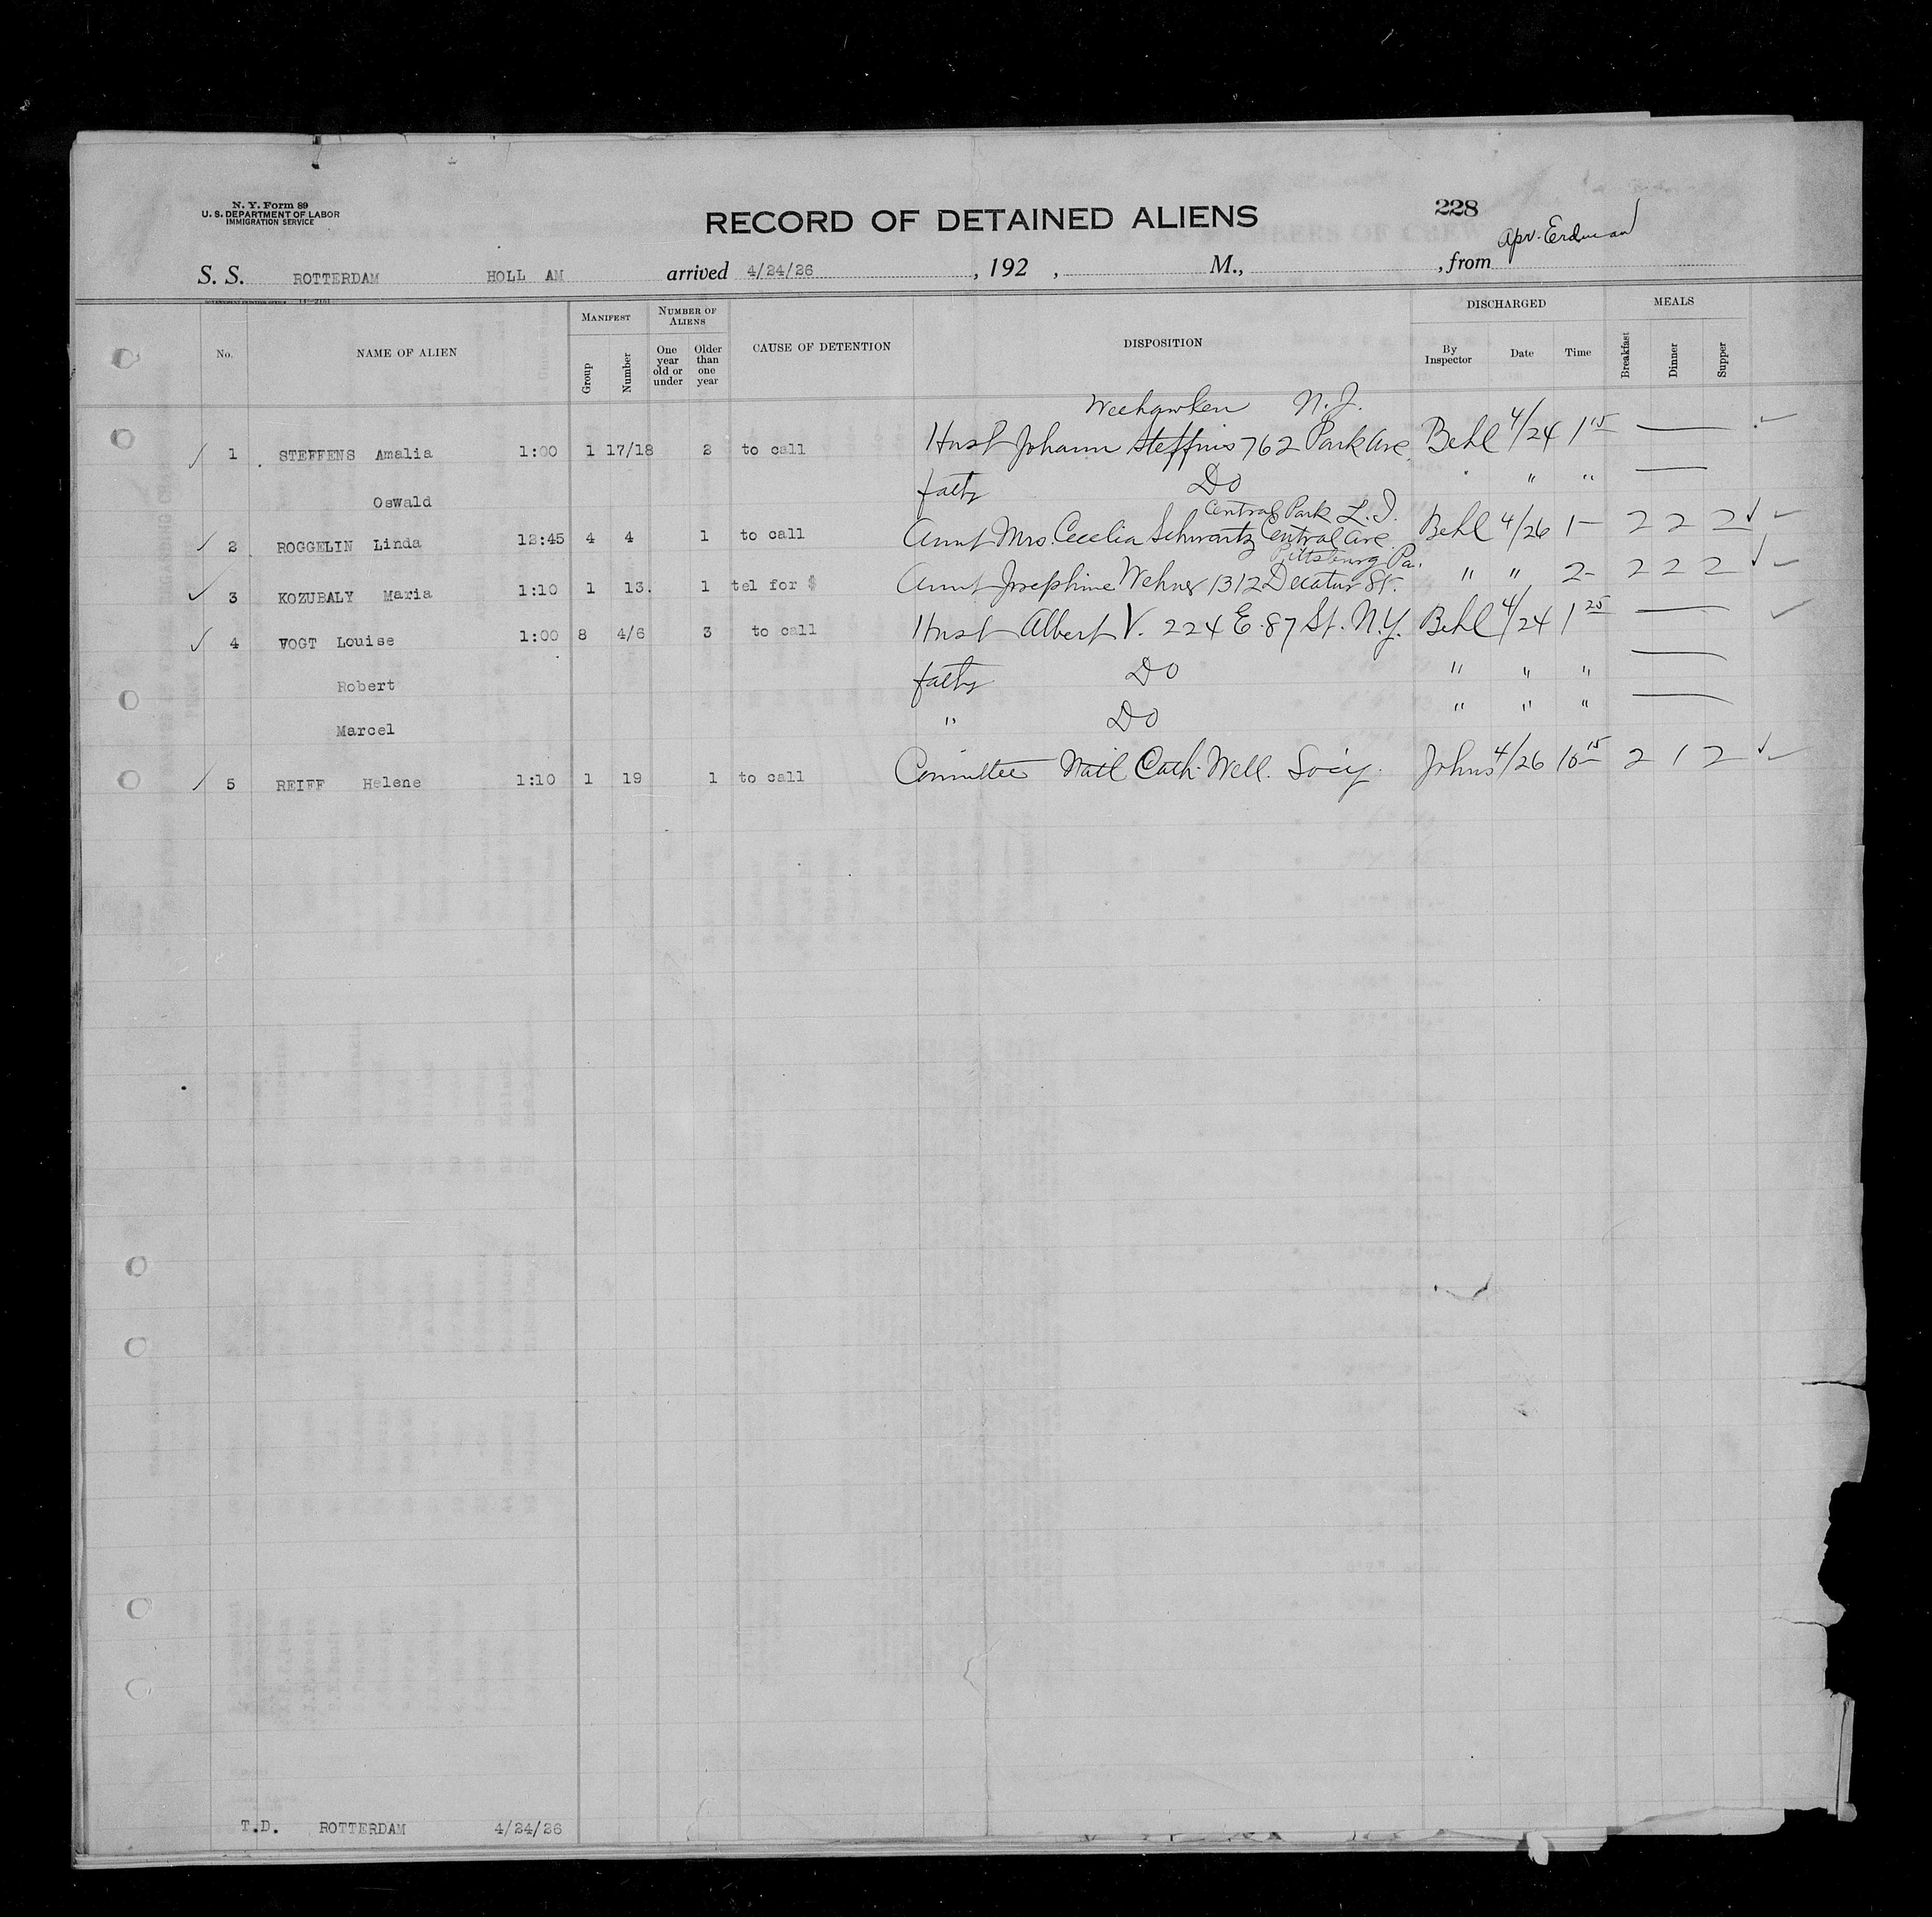 N. Y. Form 89
U. S. DEPARTMENT OF LABOR
IMMIGRATION SERVICE
RECORD OF DETAINED ALIENS
228
Apr. Erdman
S. S. ROTTERDAM HOLL AM arrived 4/24/26 , 192 , M., , from
GOVERNMENT PRINTING OFFICE 11-2151
No. NAME OF ALIEN MANIFEST Group Number NUMBER OF ALIENS One year old or under Older than one year CAUSE OF DETENTION DISPOSITION DISCHARGED By Inspector Date Time MEALS Breakfast Dinner Supper
Weehawken N. J.
✓ 1 STEFFENS Amalia 1:00 1 17/18 2 to call Husb Johann Steffins 762 Park Ave. Behl 4/24 1 15 — ✓
Oswald fathr Do " " " —
Central Park L. I.
✓ 2 ROGGELIN Linda 12:45 4 4 1 to call Aunt Mrs. Cecelia Schwartz Central Ave Behl 4/26 1— 2 2 2 ✓ ✓
Pittsburg Pa.
✓ 3 KOZUBALY Maria 1:10 1 13. 1 tel for $ Aunt Josephine Wehner 1312 Decatur St. " " 2— 2 2 2 ✓ ✓
✓ 4 VOGT Louise 1:00 8 4/6 3 to call Husb Albert V. 224 E. 87 St. N.Y. Behl 4/24 1 25 — ✓
Robert fathr Do " " " —
Marcel " Do " " " —
✓ 5 REIFF Helene 1:10 1 19 1 to call Committee Natl Cath. Well. Socy. Johns 4/26 10 15 2 1 2 ✓ ✓
T.D. ROTTERDAM 4/24/26